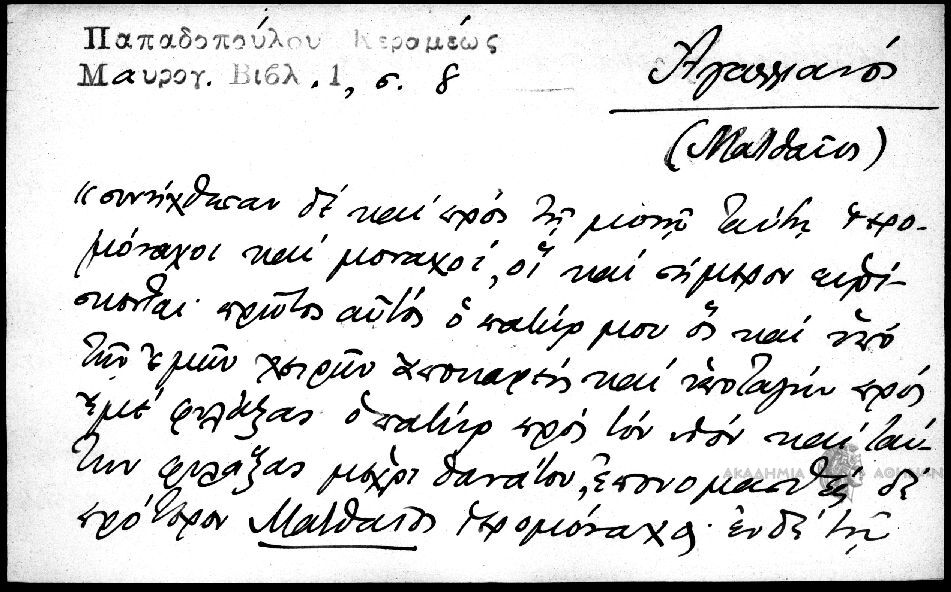 Παπαδοπούλου Κεραμέως
Μαυρογ. Βιβλ. 1, σ. 8
Ἀγαλλιανός
(Ματθαῖος)
"συνήχθησαν δέ καί πρός τῇ μονῇ ταύτῃ ἱερο-
μόναχοι καί μοναχοί, οἵ καί σήμερον εὑρί-
σκονται· πρῶτος αὐτός ὁ πατήρ μου ὅς καί ὑπό
τῶν ἐμῶν χειρῶν ἀποκαρείς καί ὑποταγήν πρός
ἐμέ φυλάξας ὁ πατήρ πρός τόν υἱόν καί ταύ-
την φυλάξας μέχρι θανάτου, ἐπονομασθείς δέ
πρότερον Ματθαῖος ἱερομόναχος· ἐν δέ τῇ
ΑΚΑΔΗΜΙΑ ΑΘΗΝΩΝ